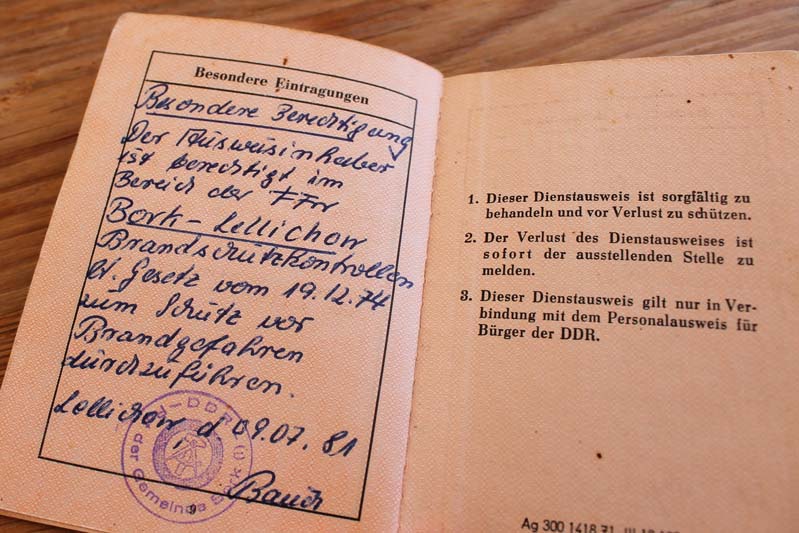 Besondere Eintragungen
Besondere Berechtigung
Der Ausweisinhaber
ist berechtigt im
Bereich der FFw
Bork-Lellichow
Brandschutzkontrollen
lt. Gesetz vom 19.12.74
zum Schutz vor
Brandgefahren
durchzuführen.
Lellichow d. 09.07.81
DDR
der Gemeinde Bork
9
1. Dieser Dienstausweis ist sorgfältig zu
behandeln und vor Verlust zu schützen.
2. Der Verlust des Dienstausweises ist
sofort der ausstellenden Stelle zu
melden.
3. Dieser Dienstausweis gilt nur in Ver-
bindung mit dem Personalausweis für
Bürger der DDR.
Ag 300 1418 71